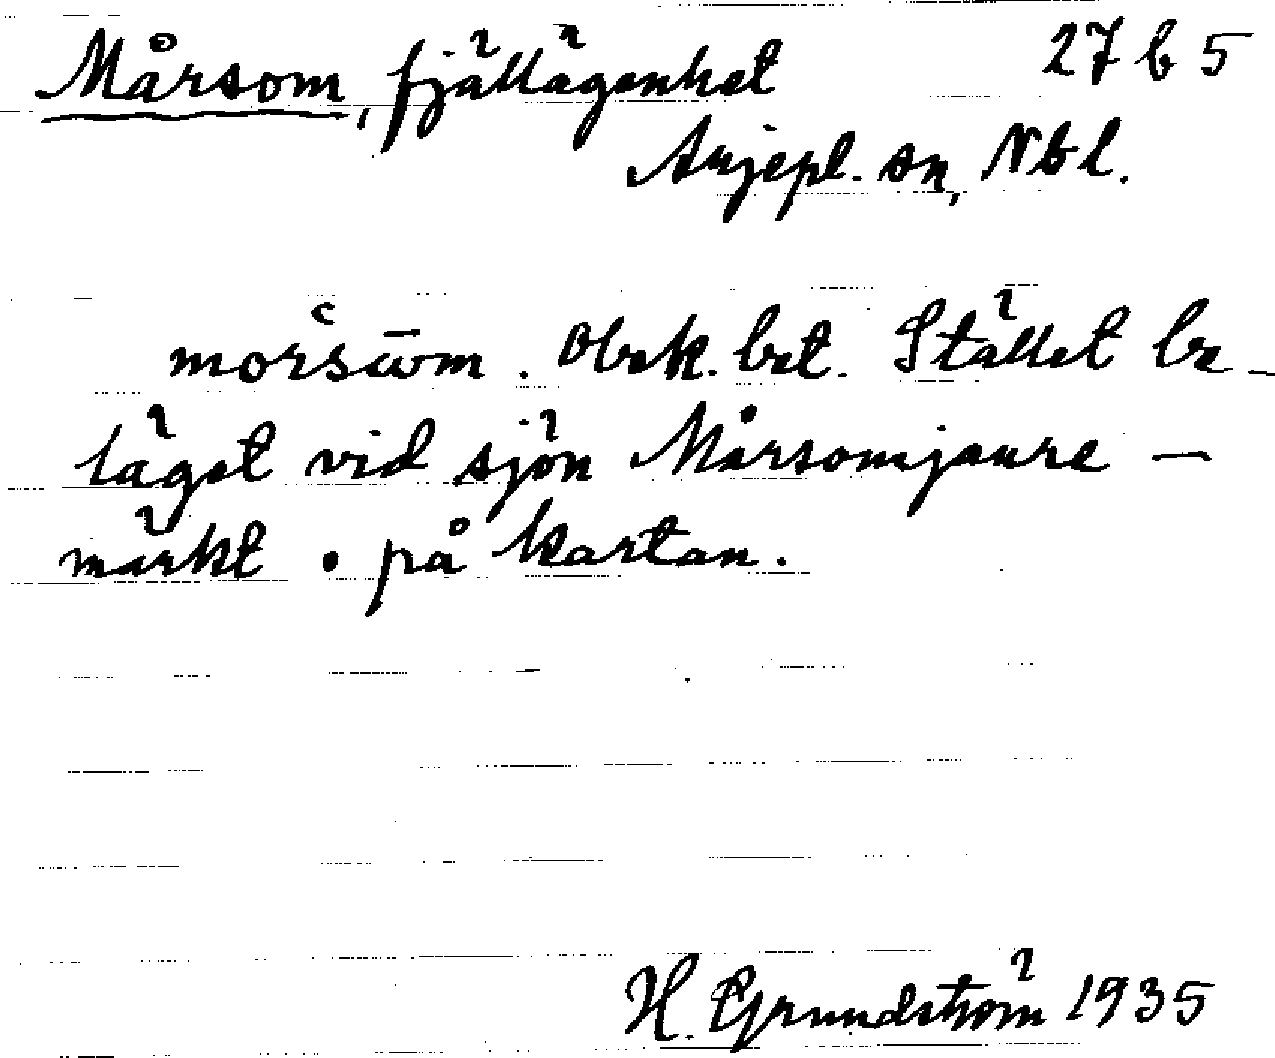 Mårsom, fjällägenhet 27 b 5
Arjepl. sn, Nbl.
Obek. bet. Stället be-
läget vid sjön Mårsomjaure —
märkt • på kartan.
H. Grundström 1935